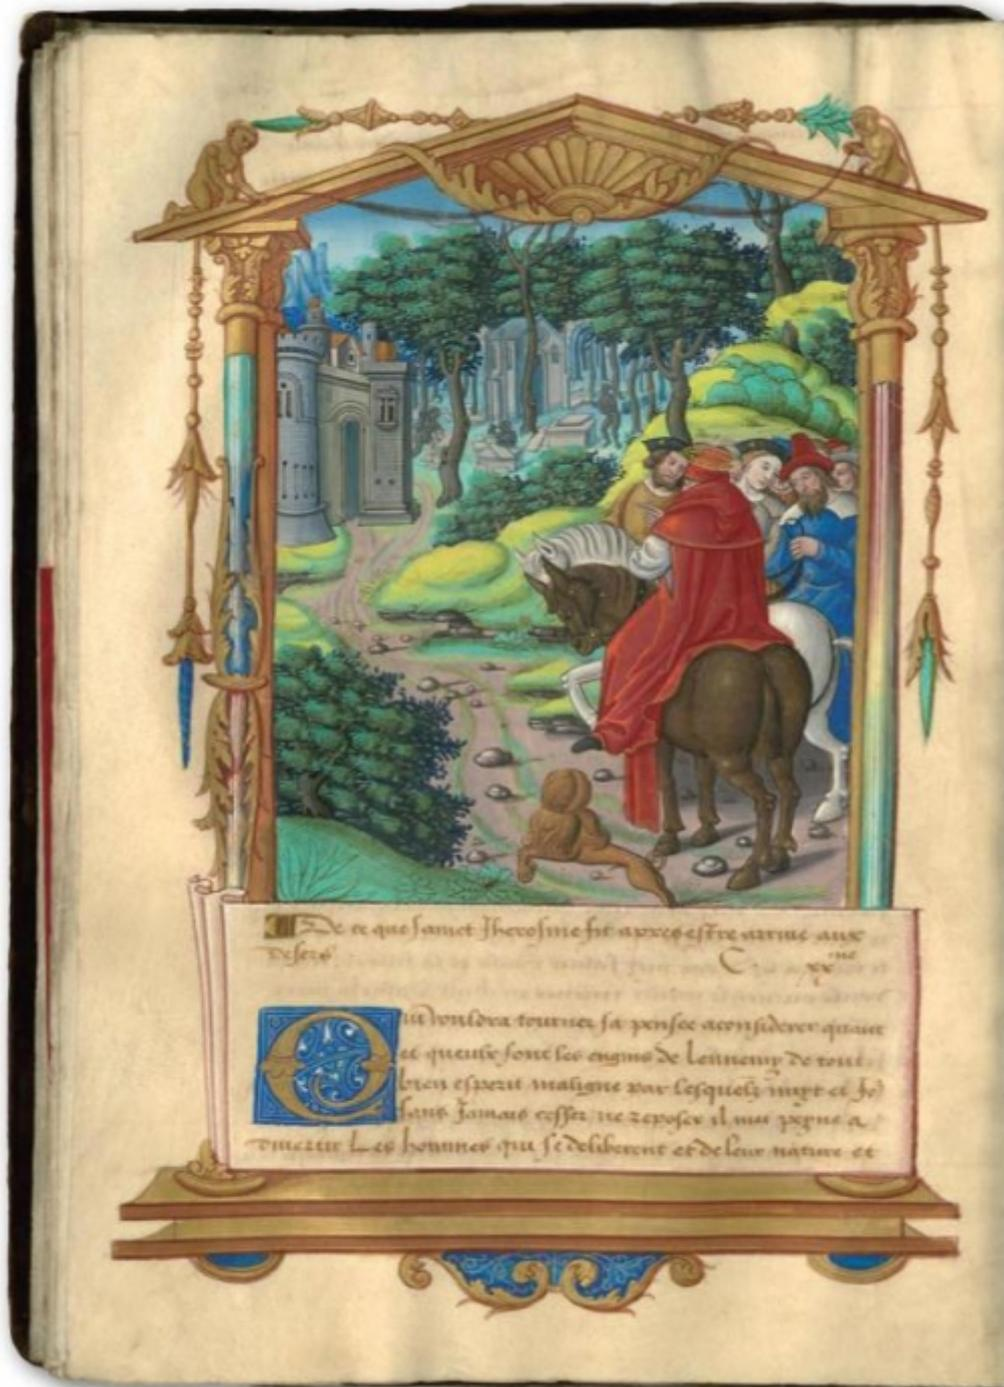 De ce que sainct Iherosme fit apres estre arrive aux
desers. C xx me
Qui vouldra tourner sa pensee a considerer quant
et queulx sont les engins de lennemy de tout
bien esperit maligne par lesquelz nuyt et Jo
sans Jamais cesser ne reposer il met peyne a
divertir Les hommes qui se deliberent et de leur nature et